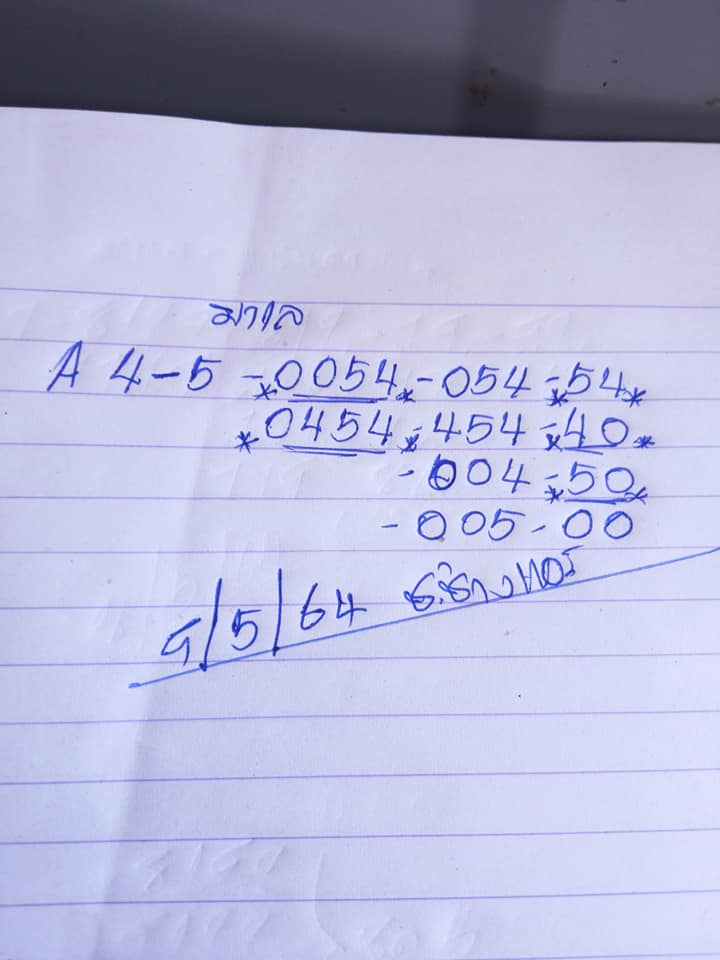 มาเล
A 4-5 -*0054*-054-*54*
*0454*-454-*40*
-004-*50*
-005-00
5/64